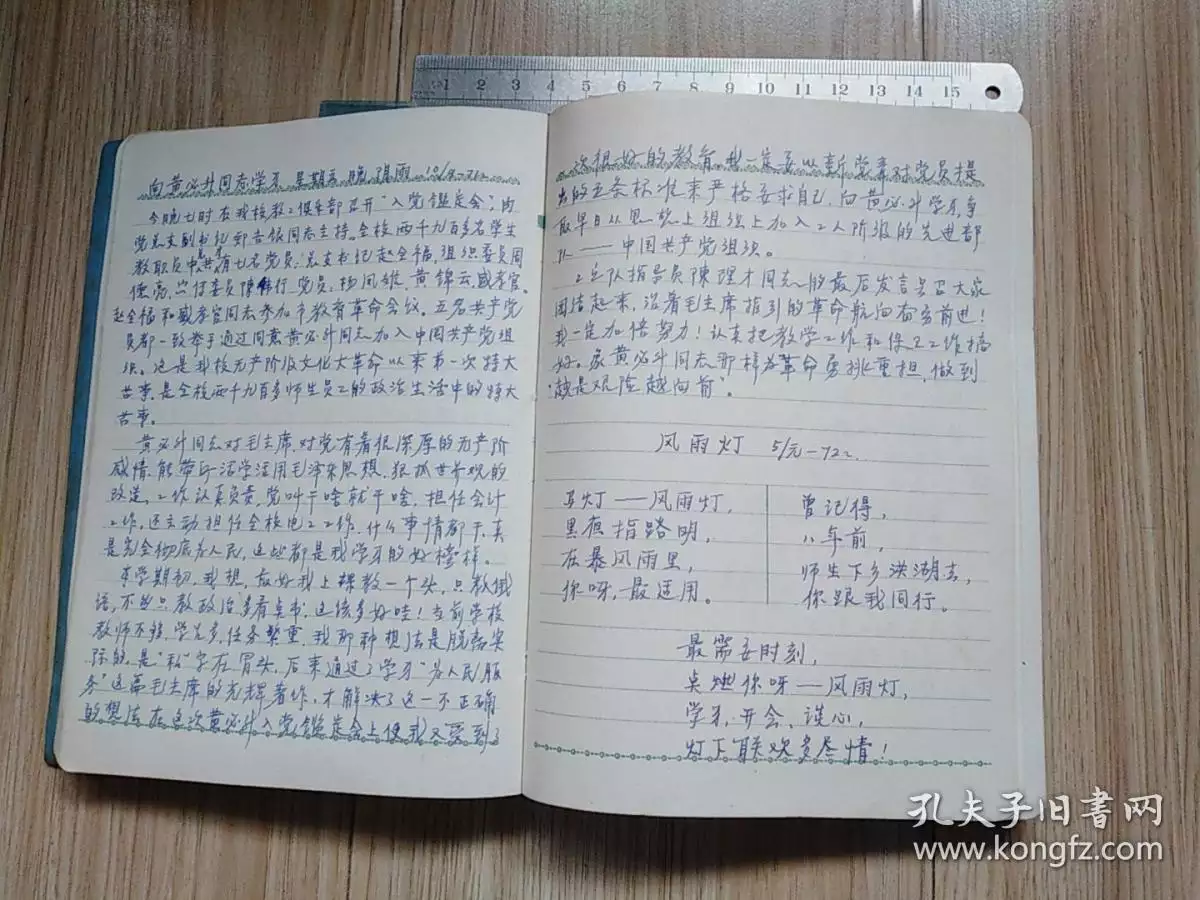 1 2 3 4 5 6 7 8 9 10 11 12 13 14 15
向黄必升同志学习 星期五 晚 阴雨
今晚七时在我校教工俱乐部召开"入党鉴定会",由
党总支副书记郭吉银同志主持。全校两千九百多名学生
教职员中共有七名党员:总支书记赵全福,组织委员周
德亮,宣传委员陈伟行,党员:杨凤雄,黄锦云,戚孝官。
赵全福和戚孝官同志参加市教育革命会议。五名共产党
员都一致举手通过同意黄必升同志加入中国共产党组
织。这是我校无产阶级文化大革命以来第一次特大
喜事,是全校两千九百多师生员工的政治生活中的特大
喜事。
黄必升同志对毛主席、对党有着很深厚的无产阶
级感情,能带好活学活用毛泽东思想,狠抓世界观的
改造。工作认真负责,党叫干啥就干啥,担任会计
工作,还主动担任全校电工工作,什么事情都干,真
是完全彻底为人民,这些都是我学习的好榜样。
本学期初,我想,最好我上课教一个头,只教俄
语,不然只教政治,多看点书,这该多好哇!当前学校
教师不够,学生多,任务繁重,我那种想法是脱离实
际的,是"私"字在冒头,后来通过了学习"为人民服
务"这篇毛主席的光辉著作,才解决了这一不正确
的想法。在这次黄必升入党鉴定会上使我又受到了
一次很好的教育。我一定要以新党章对党员提
出的五条标准来严格要求自己,向黄必升学习,争
取早日从思想上组织上加入工人阶级的先进部
队——中国共产党组织。
工宣队指导员陈理才同志的最后发言号召大家
团结起来,沿着毛主席指引的革命航向奋勇前进!
我一定加倍努力!认真把教学工作和保卫工作搞
好。象黄必升同志那样为革命勇挑重担,做到
"越是艰险越向前"。
风雨灯 5/元-72
马灯——风雨灯,
黑夜指路明,
在暴风雨里,
你呀,最适用。
曾记得,
八年前,
师生下乡洪湖去,
你跟我同行。
最需要时刻,
点燃你呀——风雨灯,
学习、开会、谈心,
灯下联欢多尽情!
孔夫子旧书网
www.kongfz.com